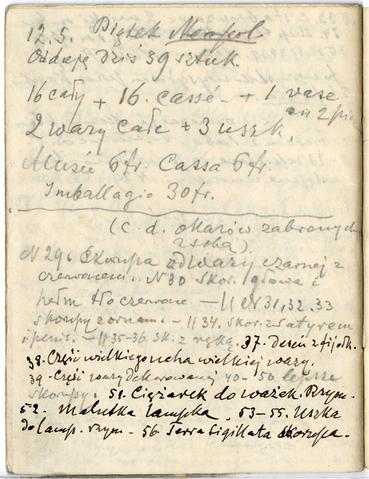 12.5. Piątek Neapol.
Oddaję Dziś 39 sztuk.
16 cały + 16. cassé - + 1 vase
en 2 piè
2 wazy całe + 3 uszk.
Musée 6 fr. Cassa 6 fr.
Imballagio 30 fr.
(c. d. okazów zabranych
z sobą)
N 29. Skorupa od wazy czarnej z
czerwonem. N 30 skor. głowa i
hełm tło czerwone. - 11 N 31, 32, 33
skorupy z ornam. - 11 34. skor. z satyrem
i penis. - 11 35-36. sk. z ręką. 37. Deseń
38. Część wielkiego ucha wielkiej wazy.
39. Część wazy dekorowanej 40 - 50 lepsze
skorupy. 51. Ciężarek do wazek. Rzym.
52. Malutka lampka. 53-55. Uszka
do lamp. rzym. - 56. Terra Sigillata skorupa.